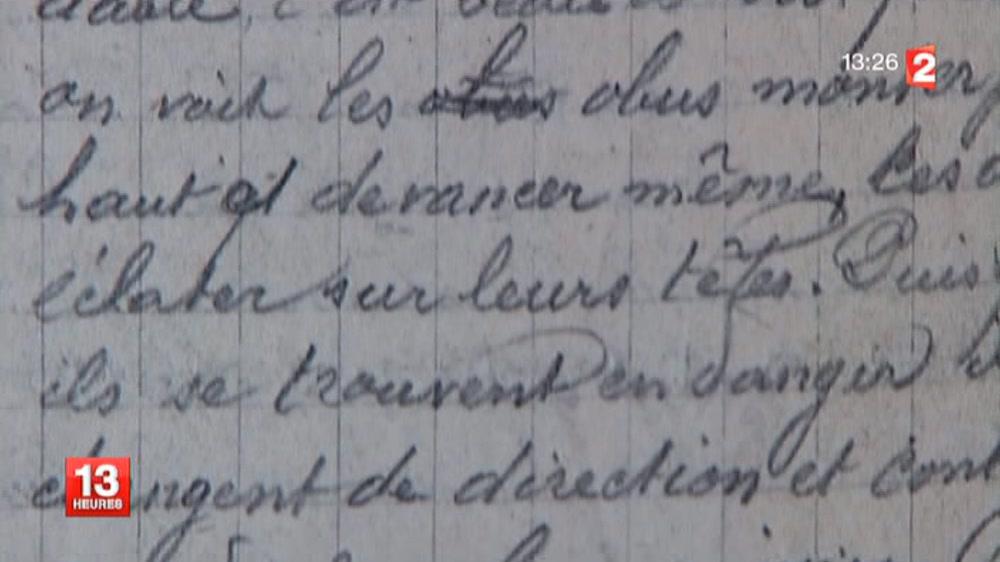 13:26 2
on voit les obus monter
haut et devancer même, les
éclater sur leurs têtes. Puis
ils se trouvent en danger
changent de direction et cont
13
HEURES